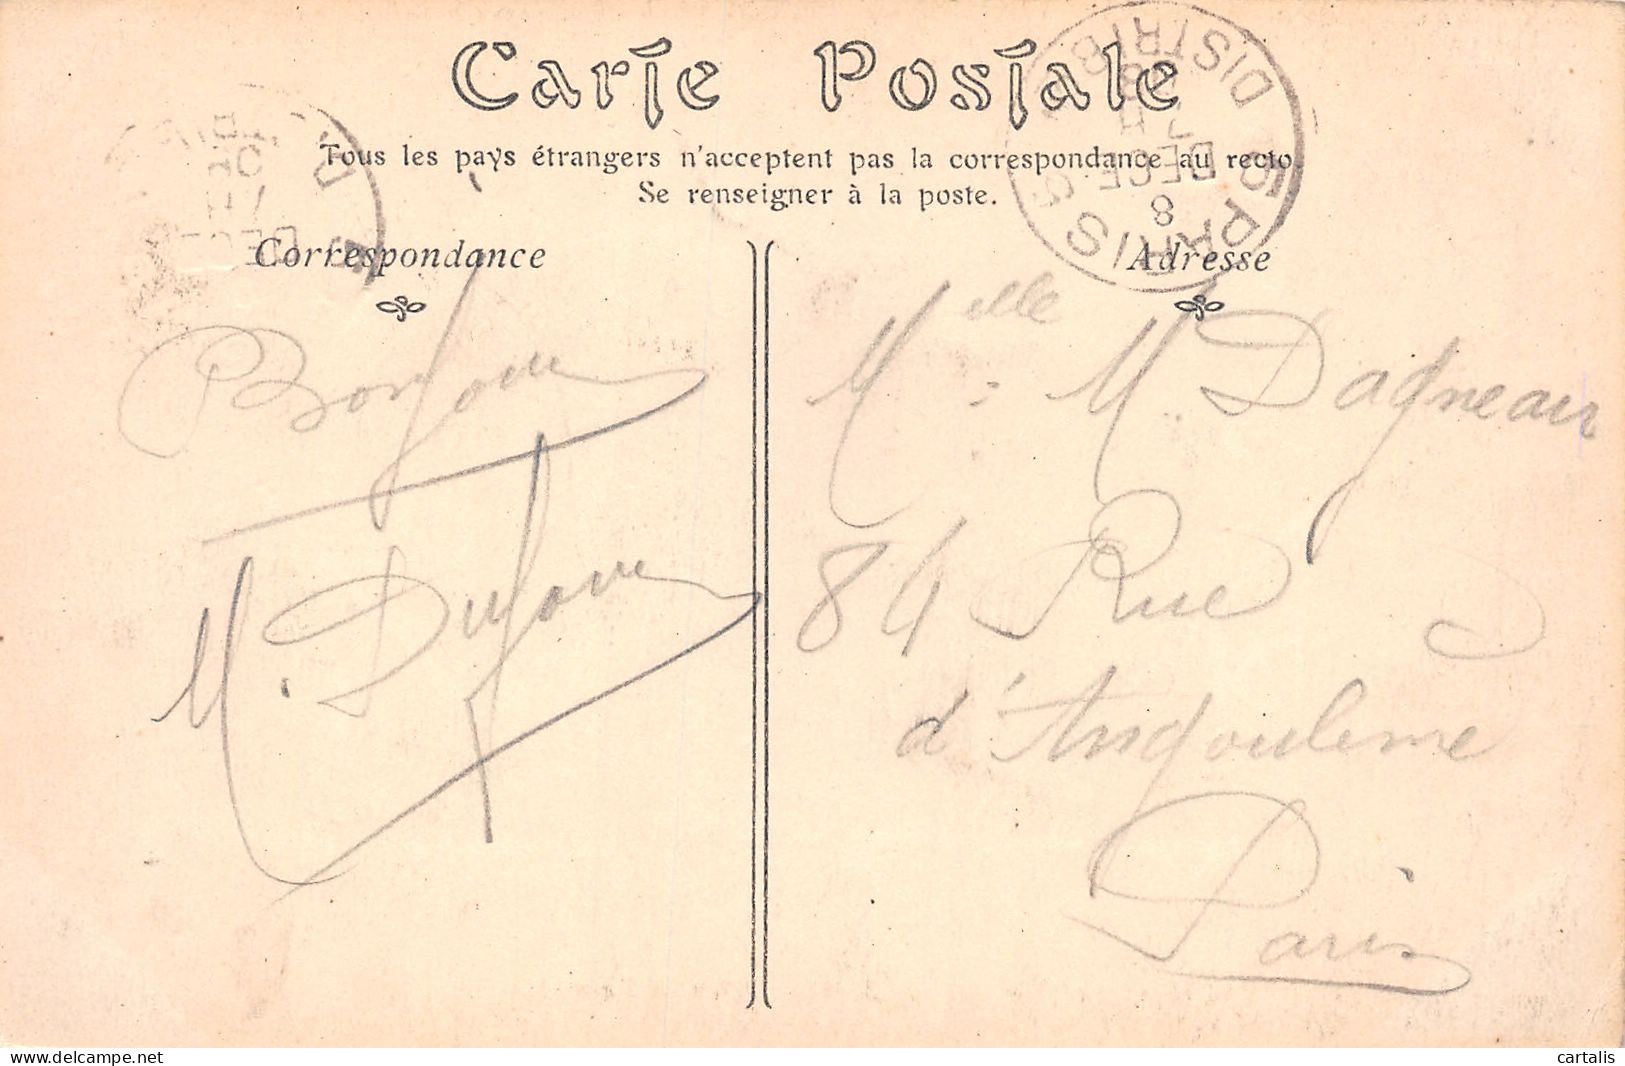 Carte Postale
Tous les pays étrangers n'acceptent pas la correspondance au recto.
Se renseigner à la poste.
Correspondance
Adresse
Bonjour
M. Dufour
Melle. M. Dagneau
84 Rue
d'Angouleme
Paris
PARIS
DISTRIB
8
DECE
cartalis